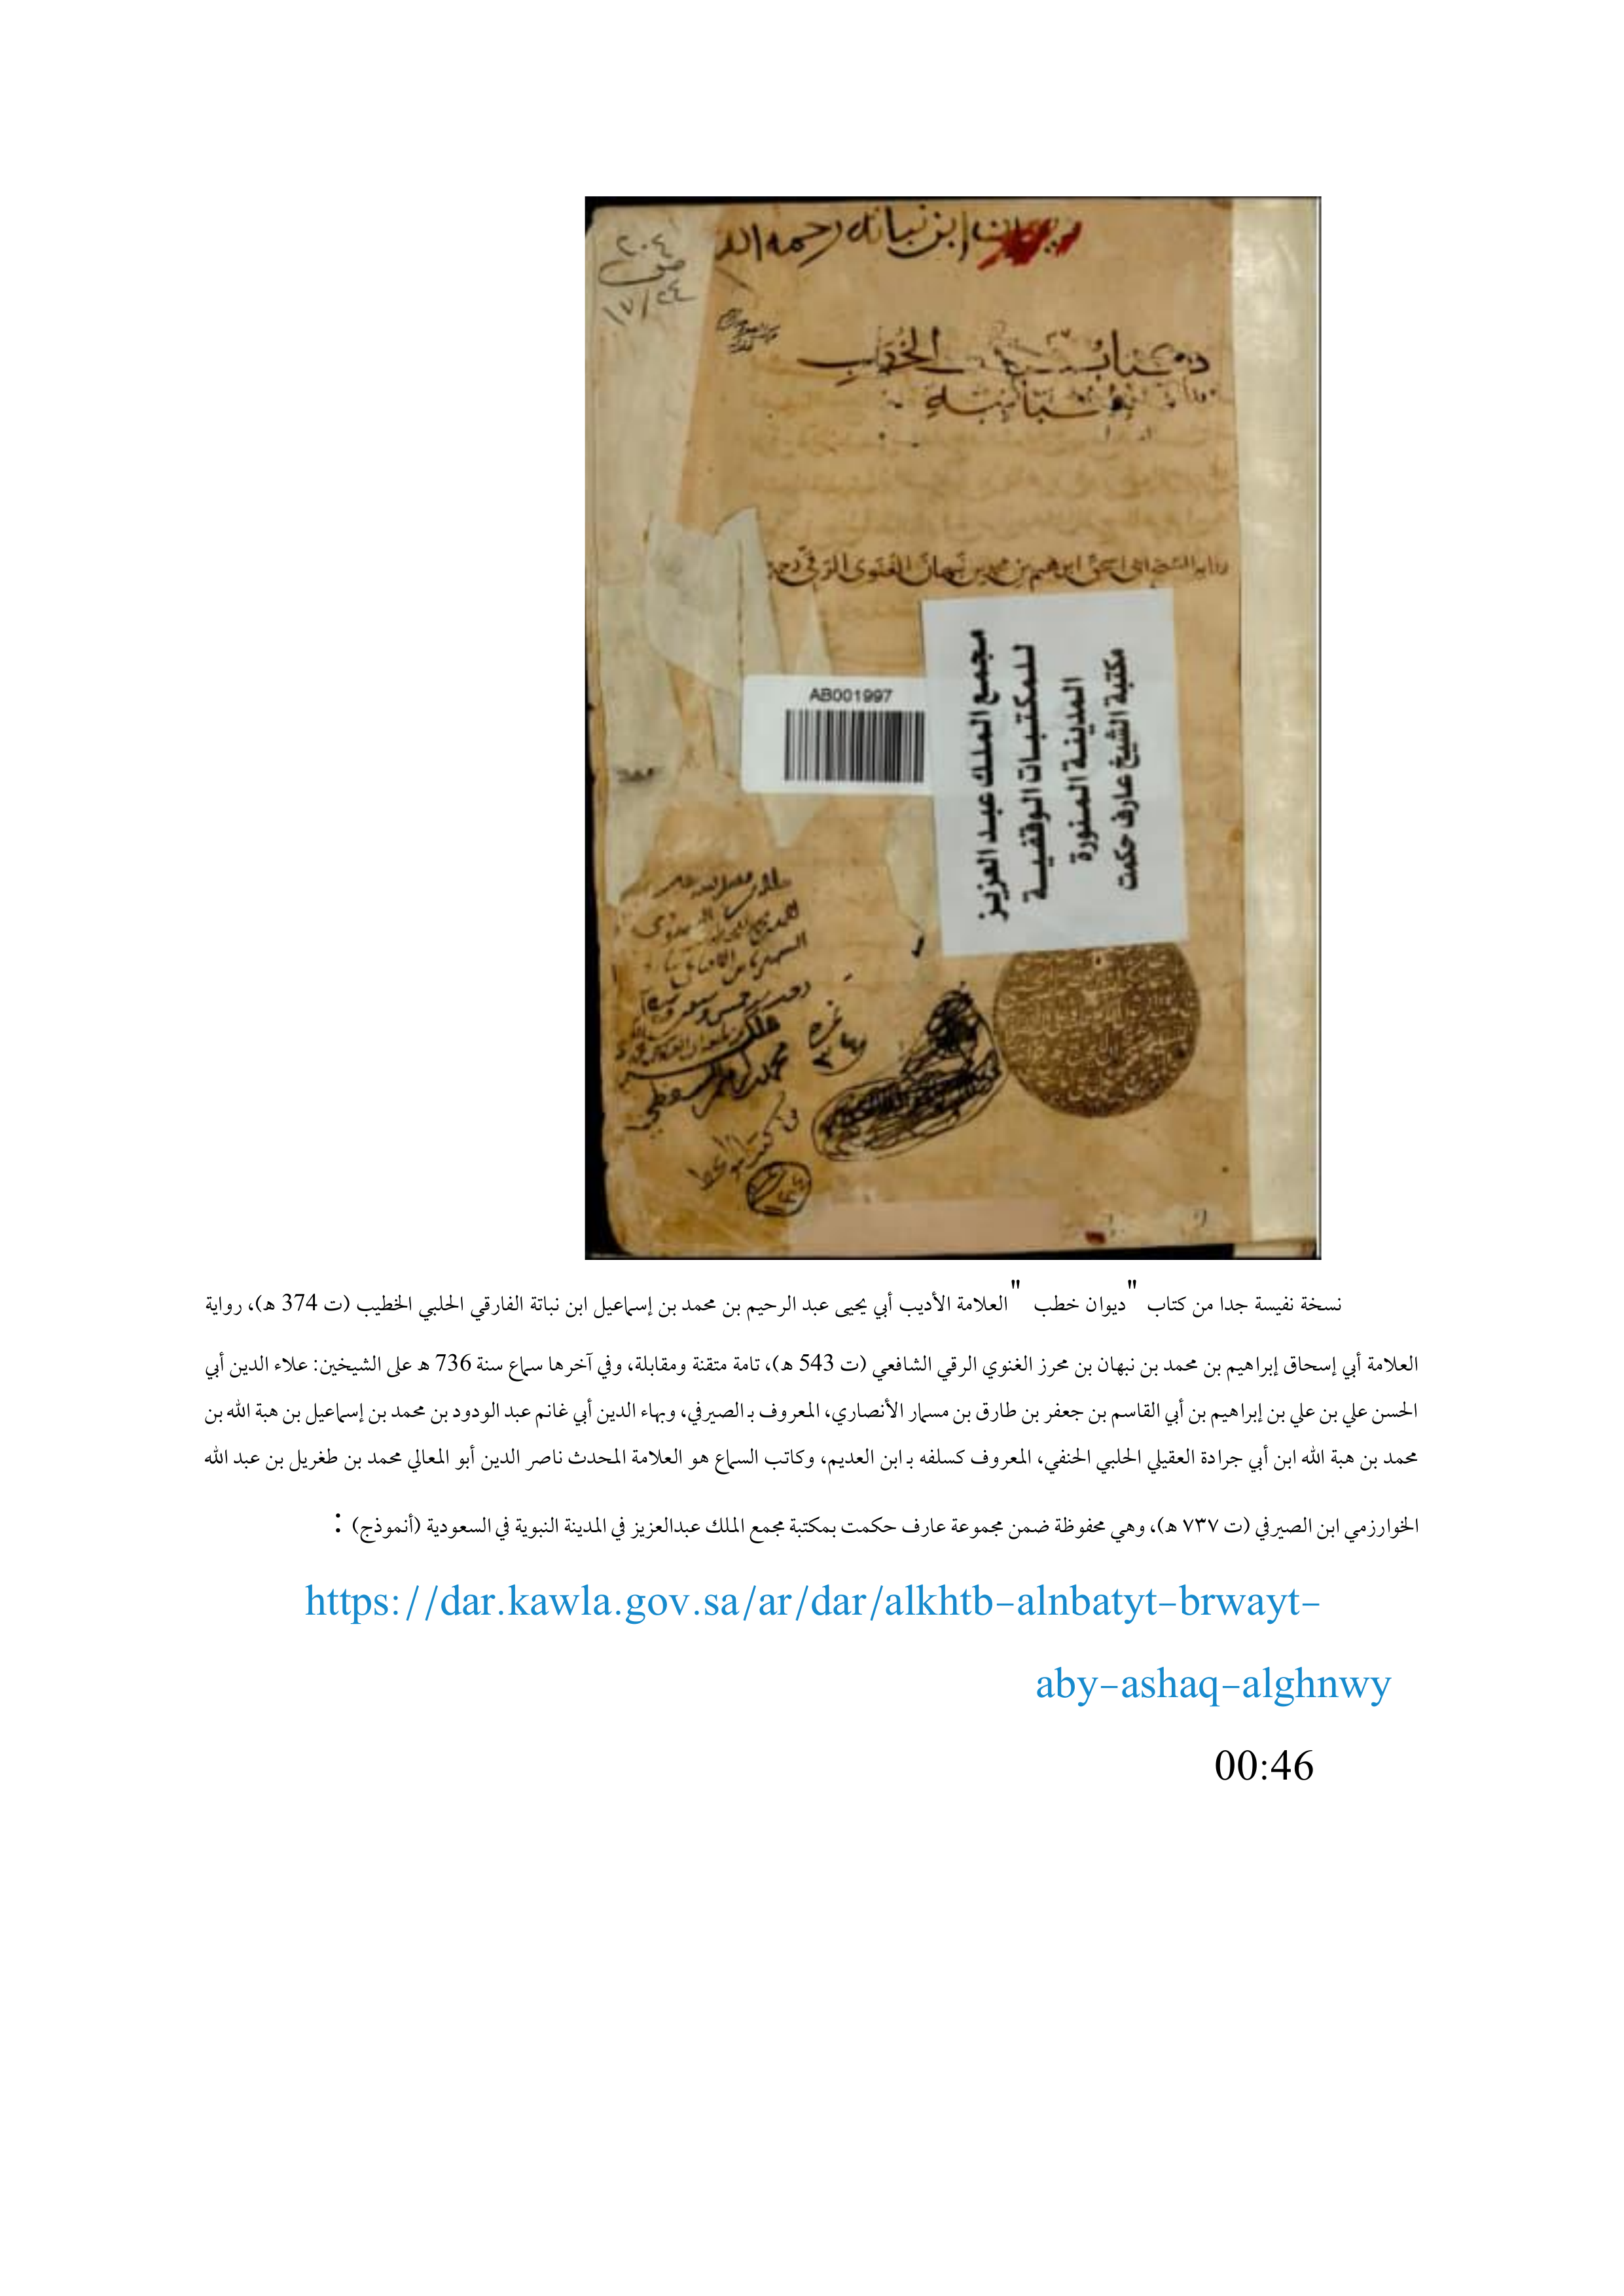 ديوان ابن نباته رحمه الله
٢٠٤
١٧/٢٤
كتاب الخطب
الشيخ ابي اسحق ابرهيم بن محمد بن نبهان الغنوي الرقي رحمه
AB001997
مجمع الملك عبد العزيز
للمكتبات الوقفية
المدينة المنورة
مكتبة الشيخ عارف حكمت
نسخة نفيسة جدا من كتاب "ديوان خطب" العلامة الأديب أبي يحيى عبد الرحيم بن محمد بن إسماعيل ابن نباتة الفارقي الحلبي الخطيب (ت 374 هـ)، رواية
العلامة أبي إسحاق إبراهيم بن محمد بن نبهان بن محرز الغنوي الرقي الشافعي (ت 543 هـ)، تامة متقنة ومقابلة، وفي آخرها سماع سنة 736 هـ على الشيخين: علاء الدين أبي
الحسن علي بن علي بن إبراهيم بن أبي القاسم بن جعفر بن طارق بن مسمار الأنصاري، المعروف بـ الصيرفي، وبهاء الدين أبي غانم عبد الودود بن محمد بن إسماعيل بن هبة الله بن
محمد بن هبة الله ابن أبي جرادة العقيلي الحلبي الحنفي، المعروف كسلفه بـ ابن العديم، وكاتب السماع هو العلامة المحدث ناصر الدين أبو المعالي محمد بن طغريل بن عبد الله
الخوارزمي ابن الصيرفي (ت ٧٣٧ هـ)، وهي محفوظة ضمن مجموعة عارف حكمت بمكتبة مجمع الملك عبدالعزيز في المدينة النبوية في السعودية (أنموذج) :
https://dar.kawla.gov.sa/ar/dar/alkhtb-alnbatyt-brwayt-
aby-ashaq-alghnwy
00:46